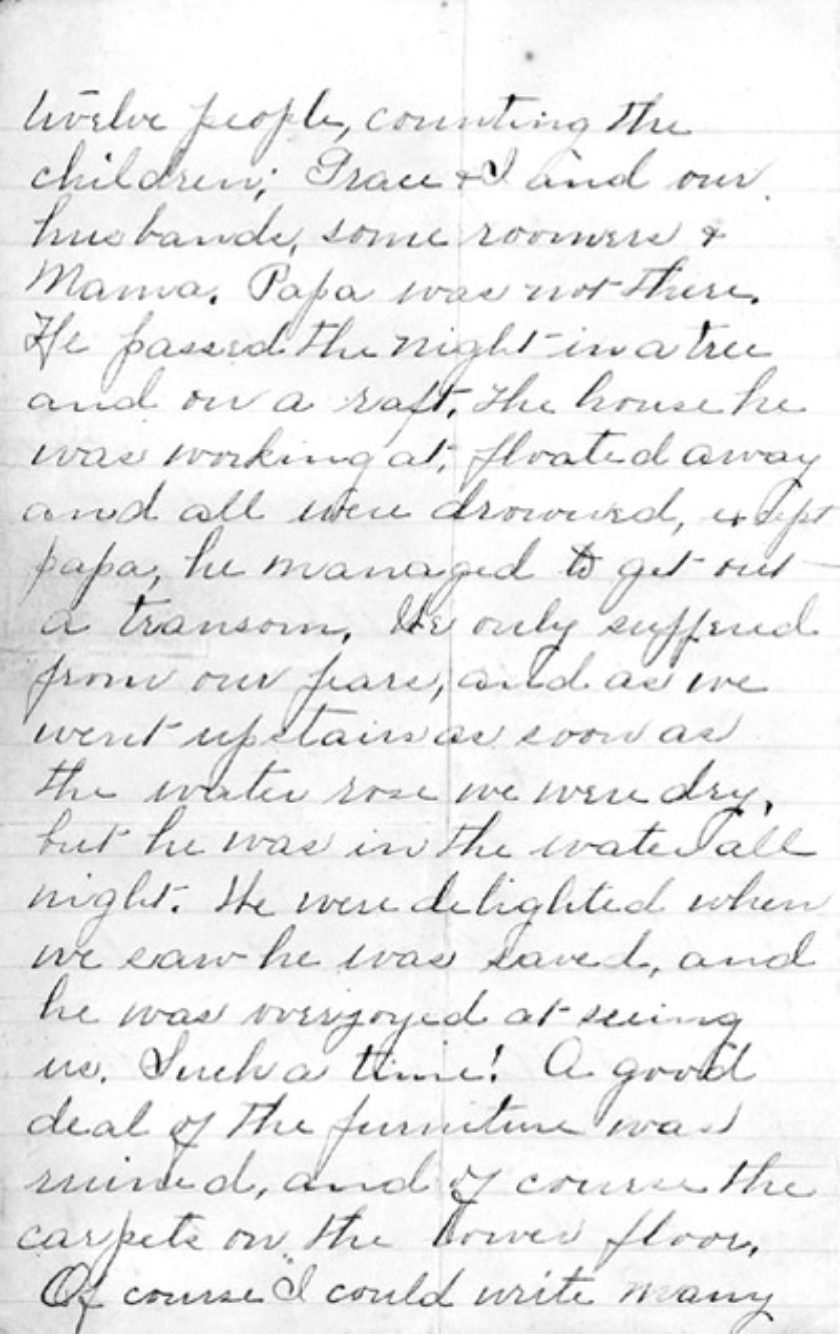 twelve people, counting the
children; Grace & I and our
husbands, some roomers &
Mama. Papa was not there.
He passed the night in a tree
and on a raft. The house he
was working at, floated away
and all were drowned, except
papa, he managed to get out
a transom. We only suffered
from our fears, and as we
went upstairs as soon as
the water rose we were dry,
but he was in the water all
night. We were delighted when
we saw he was saved, and
he was overjoyed at seeing
us. Such a time! A good
deal of the furniture was
ruined, and of course the
carpets on the lower floor.
Of course I could write many